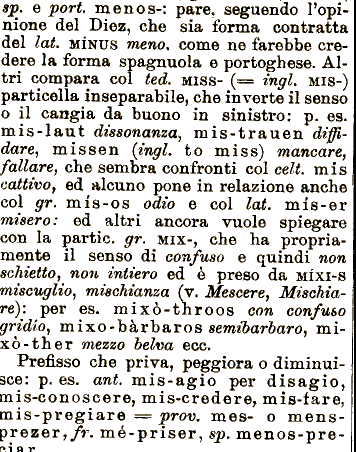 sp. e port. menos-: pare, seguendo l'opi-
nione del Diez, che sia forma contratta
del lat. MÌNUS meno, come ne farebbe cre-
dere la forma spagnuola e portoghese. Al-
tri compara col ted. MISS- (= ingl. MIS-)
particella inseparabile, che inverte il senso
o il cangia da buono in sinistro: p. es.
mis-laut dissonanza, mis-trauen diffi-
dare, missen (ingl. to miss) mancare,
fallare, che sembra confronti col celt. mis
cattivo, ed alcuno pone in relazione anche
col gr. mis-os odio e col lat. mis-er
misero: ed altri ancora vuole spiegare
con la partic. gr. MIX-, che ha propria-
mente il senso di confuso e quindi non
schietto, non intiero ed è preso da MÍXI-S
miscuglio, mischianza (v. Mescere, Mischia-
re): per es. mixò-throos con confuso
gridìo, mixo-bàrbaros semibarbaro, mi-
xò-ther mezzo belva ecc.
Prefisso che priva, peggiora o diminui-
sce: p. es. ant. mis-agio per disagio,
mis-conoscere, mis-credere, mis-fare,
mis-pregiare = prov. mes- o mens-
prezer, fr. mé-priser, sp. menos-pre-
ciar